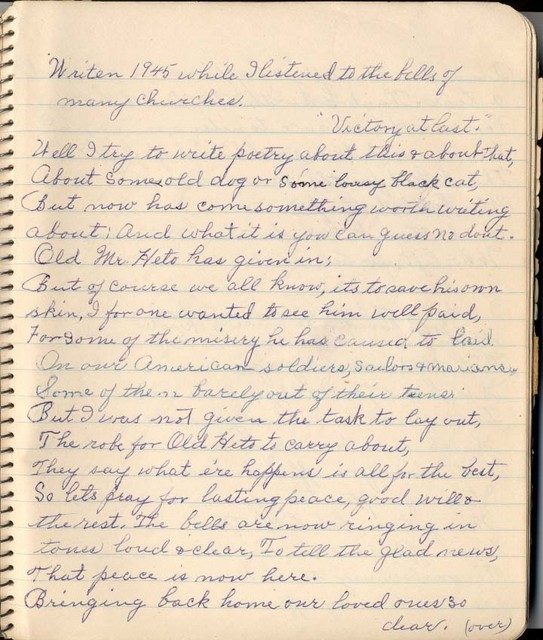 Writen 1945 while I listened to the bells of
many churches.
"Victory at last."
Well I try to write poetry about this & about that,
About some old dog or some lousy black cat,
But now has come something worth writing
about: And what it is you can guess no dout.
Old Mr. Heto has given in;
But of course we all know, its to save his own
skin, I for one wanted to see him well paid,
For some of the misery he has caused to laid
On our American soldiers, sailors & marians,
Some of them barely out of their teens.
But I was not given the task to lay out,
The robe for Old Heto to carry about,
They say what e're happens is all for the best,
So lets pray for lasting peace, good will &
the rest. The bells are now ringing in
tones loud & clear, To tell the glad news,
That peace is now here.
Bringing back home our loved ones so
clear. (over)